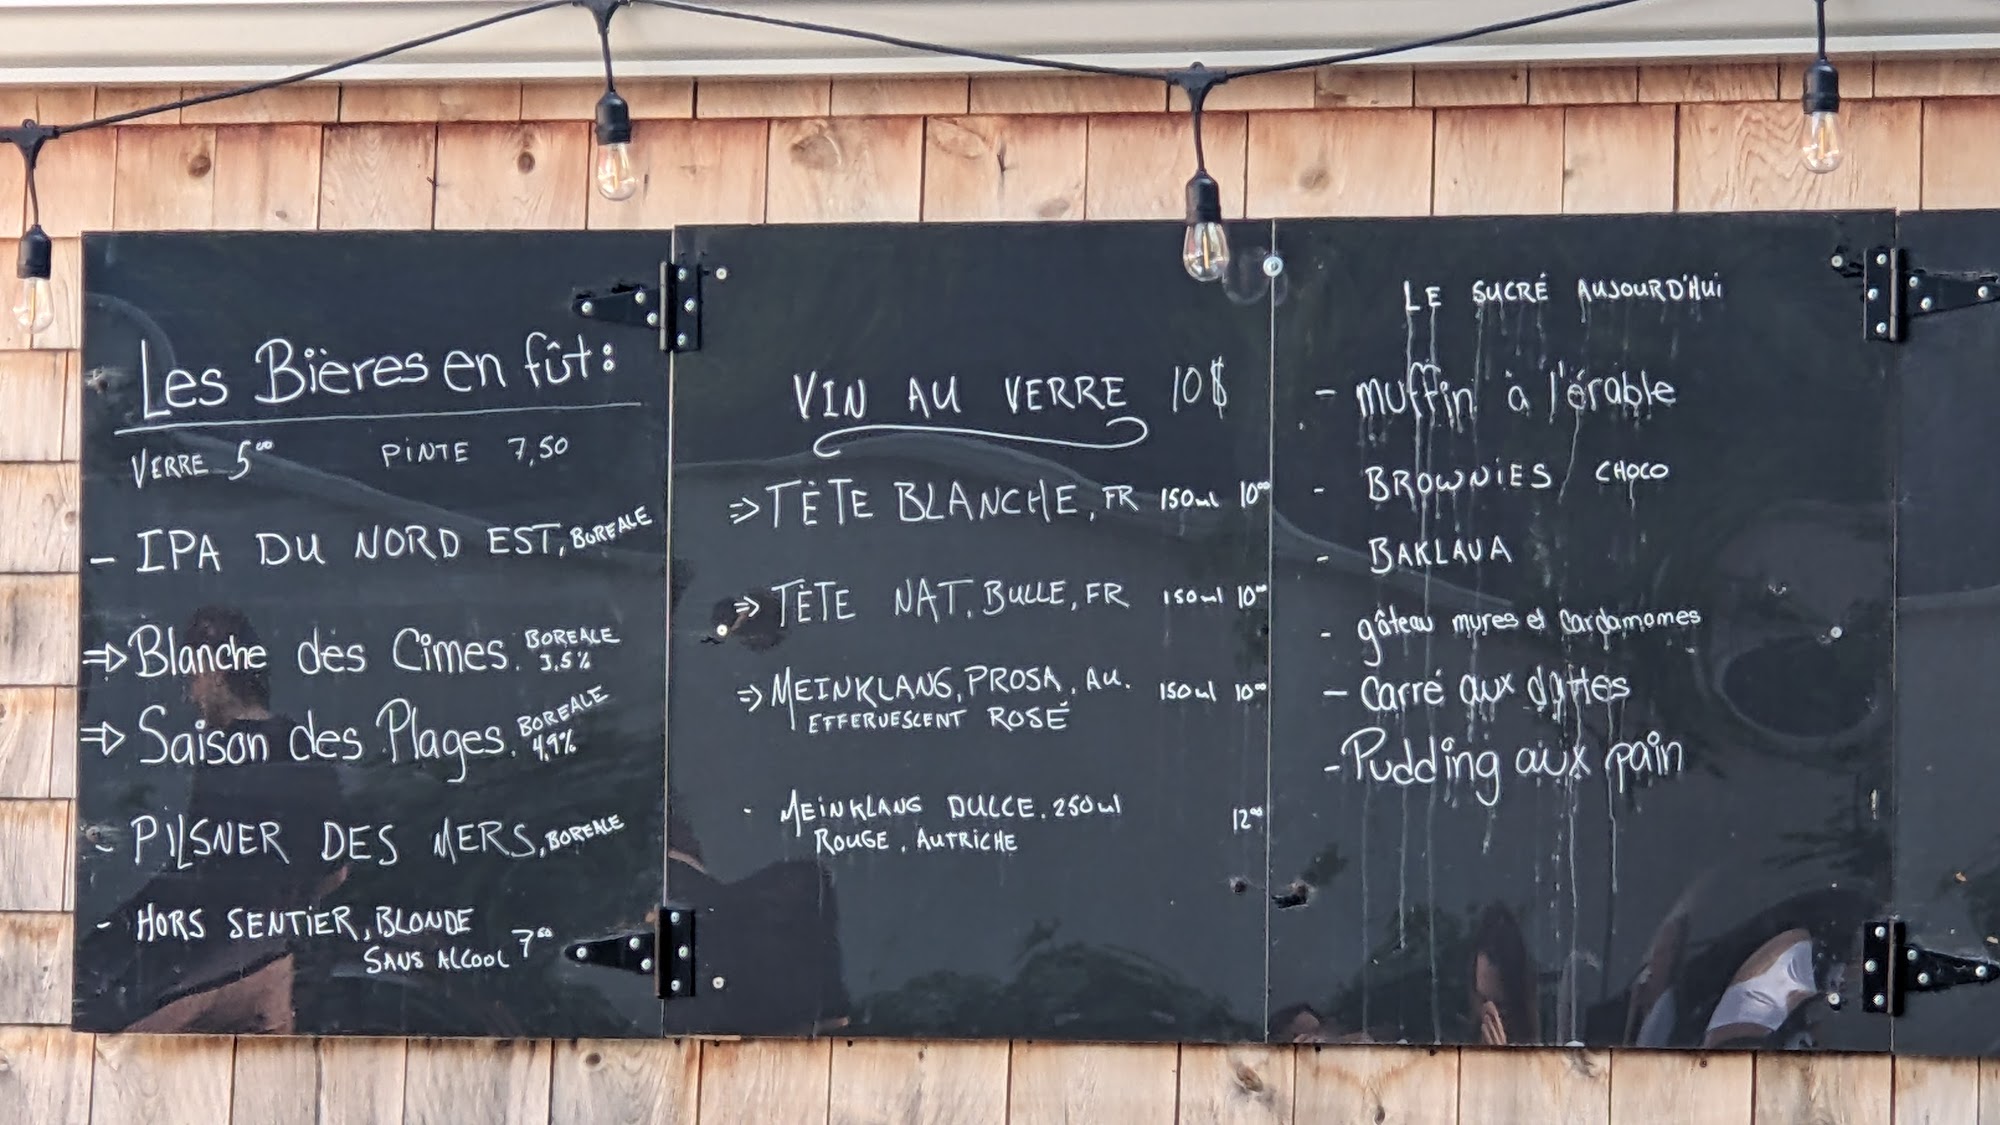 Les Bières en fût:
VERRE 5⁰⁰ PINTE 7,50
- IPA DU NORD EST, BOREALE
⇒ Blanche des Cimes. BOREALE
3,5%
⇒ Saison des Plages. BOREALE
4,9%
- PILSNER DES MERS, BOREALE
- HORS SENTIER, BLONDE
SANS ALCOOL 7⁵⁰
VIN AU VERRE 10$
⇒ TÈTE BLANCHE, FR 150ml 10⁰⁰
⇒ TÈTE NAT. BULLE, FR 150ml 10⁰⁰
⇒ MEINKLANG, PROSA, AU. 150ml 10⁰⁰
EFFERVESCENT ROSÉ
· MEINKLANG DULCE. 250ml 12⁰⁰
ROUGE, AUTRICHE
LE SUCRÉ AUJOURD'HUI
- muffin à l'érable
- BROWNIES CHOCO
- BAKLAVA
- gâteau mures et cardamomes
- Carré aux dattes
- Pudding aux pain